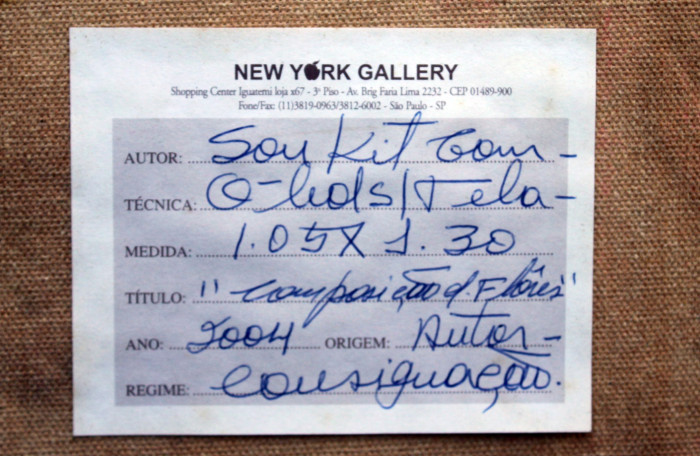 NEW YORK GALLERY
Shopping Center Iguatemi loja x67 - 3º Piso - Av. Brig Faria Lima 2232 - CEP 01489-900
Fone/Fax: (11)3819-0963/3812-6002 - São Paulo - SP
AUTOR: Sou Kit Gom -
TÉCNICA: O-leo/s/Tela -
MEDIDA: 1.05 X 1.30
TÍTULO: "composição d Flôres"
ANO: 2004 ORIGEM: Autor -
REGIME: consignação.